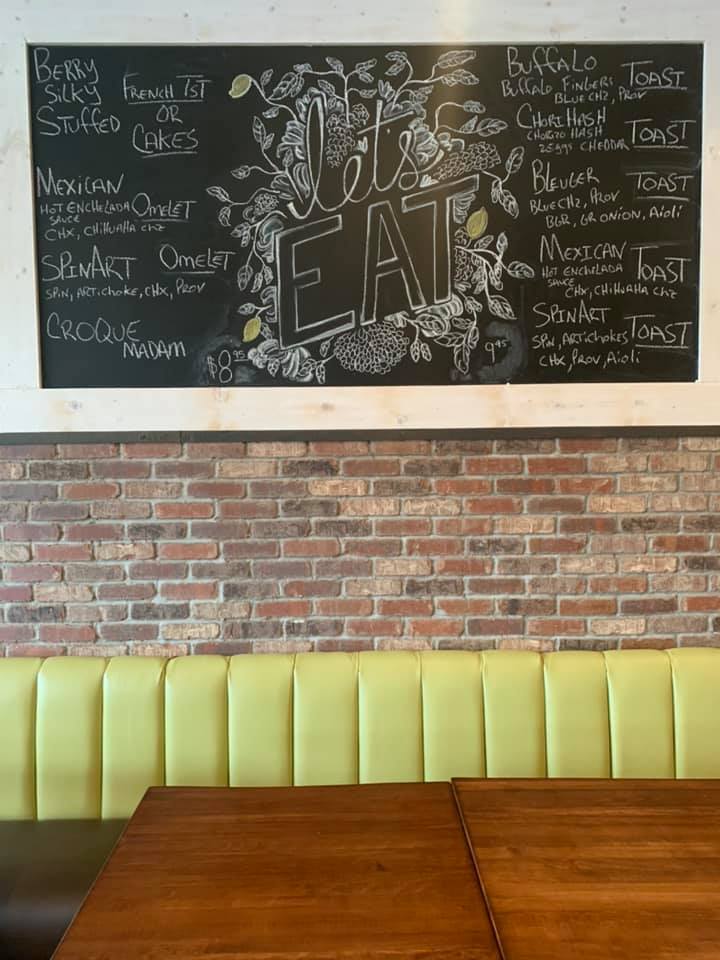 BERRY
SILKY
STUFFED
FRENCH TST
OR
CAKES
MEXICAN
HOT ENCHELADA
SAUCE
OMELET
CHX, CHIHUAHA CHZ
SPINART OMELET
SPIN, ARTICHOKE, CHX, PROV
CROQUE
MADAM
$8.95
let's
EAT
9.45
BUFFALO TOAST
BUFFALO FINGERS
BLUE CHZ, PROV
CHORIHASH TOAST
CHORIZO HASH
2 EGGS CHEDDAR
BLEUGER TOAST
BLUE CHZ, PROV
BGR, GR ONION, AIOLI
MEXICAN TOAST
HOT ENCHELADA
SAUCE
CHX, CHIHUAHA CHZ
SPINART TOAST
SPN, ARTICHOKES
CHX, PROV, AIOLI